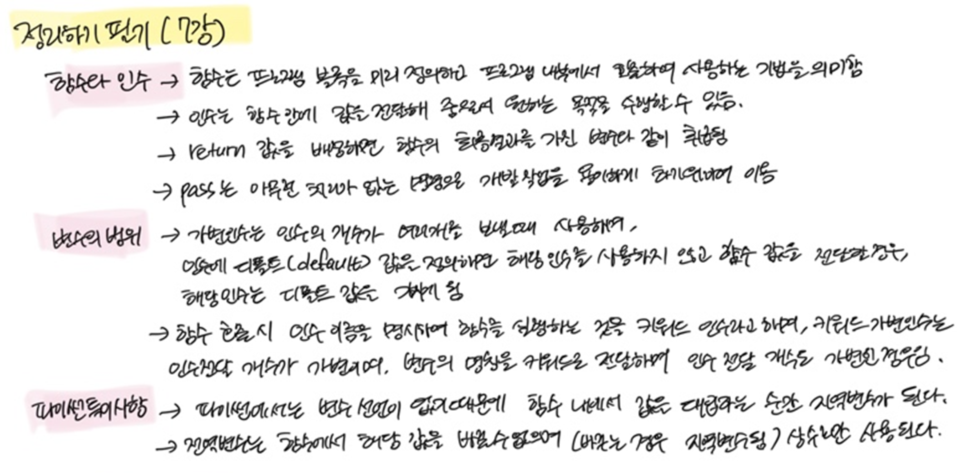 정리하기 필기 (7강)
함수와 인수 → 함수는 프로그램 블록을 미리 정의하고 프로그램 내부에서 호출하여 사용하는 기법을 의미함
→ 인수는 함수 간에 값을 전달해 줌으로써 원하는 목적을 수행할 수 있음.
→ return 값을 배정하면 함수의 최종결과를 가진 변수와 같이 취급됨
→ pass는 아무런 처리가 없는 명령으로 개발작업을 용이하게 하기위하여 이용
변수의 범위 → 가변인수는 인수의 개수가 여러개를 보낼때 사용하며,
인수에 디폴트(default) 값을 정의하면 해당 인수를 사용하지 않고 함수 값을 전달한 경우,
해당인수는 디폴트 값을 가지게 됨
→ 함수 호출 시 인수 이름을 명시하여 함수를 실행하는 것을 키워드 인수라고 하며, 키워드 가변인수는
인수전달 개수가 가변이며, 변수의 명칭을 키워드로 전달하며 인수 전달 개수도 가변인 경우임.
파이썬특이사항 → 파이썬에서는 변수 선언이 없기 때문에 함수 내에서 값을 대입하는 순간 지역변수가 된다.
→ 전역변수는 함수에서 해당 값을 바꿀수 없으며 (바꾸는 경우 지역변수됨) 상수로만 사용된다.